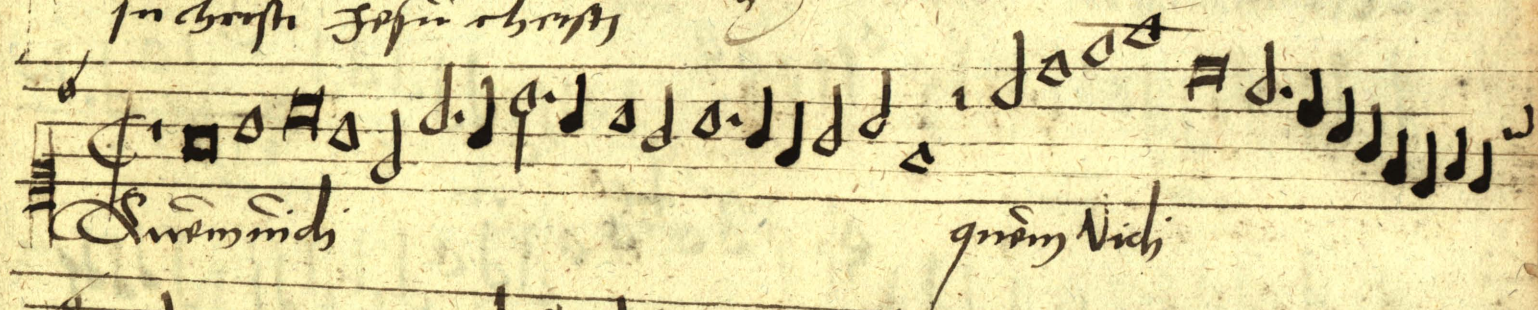 Jn christi Jesu christi
Quem vidi quem Vidi